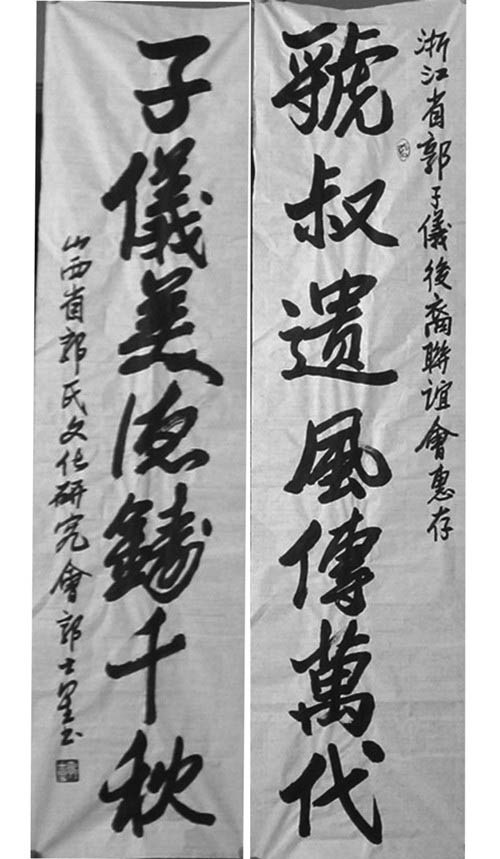 浙江省郭子儀後裔聯誼會惠存
虢叔遺風傳萬代
子儀美德鑄千秋
山西省郭氏文化研究會郭士星书